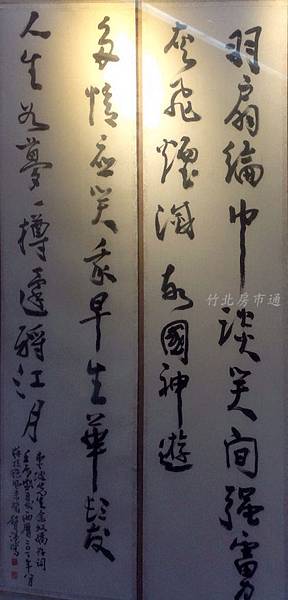 羽扇綸巾談笑間強虜
灰飛煙滅故國神遊
多情應笑我早生華髮
人生如夢一樽還酹江月
竹北房市通